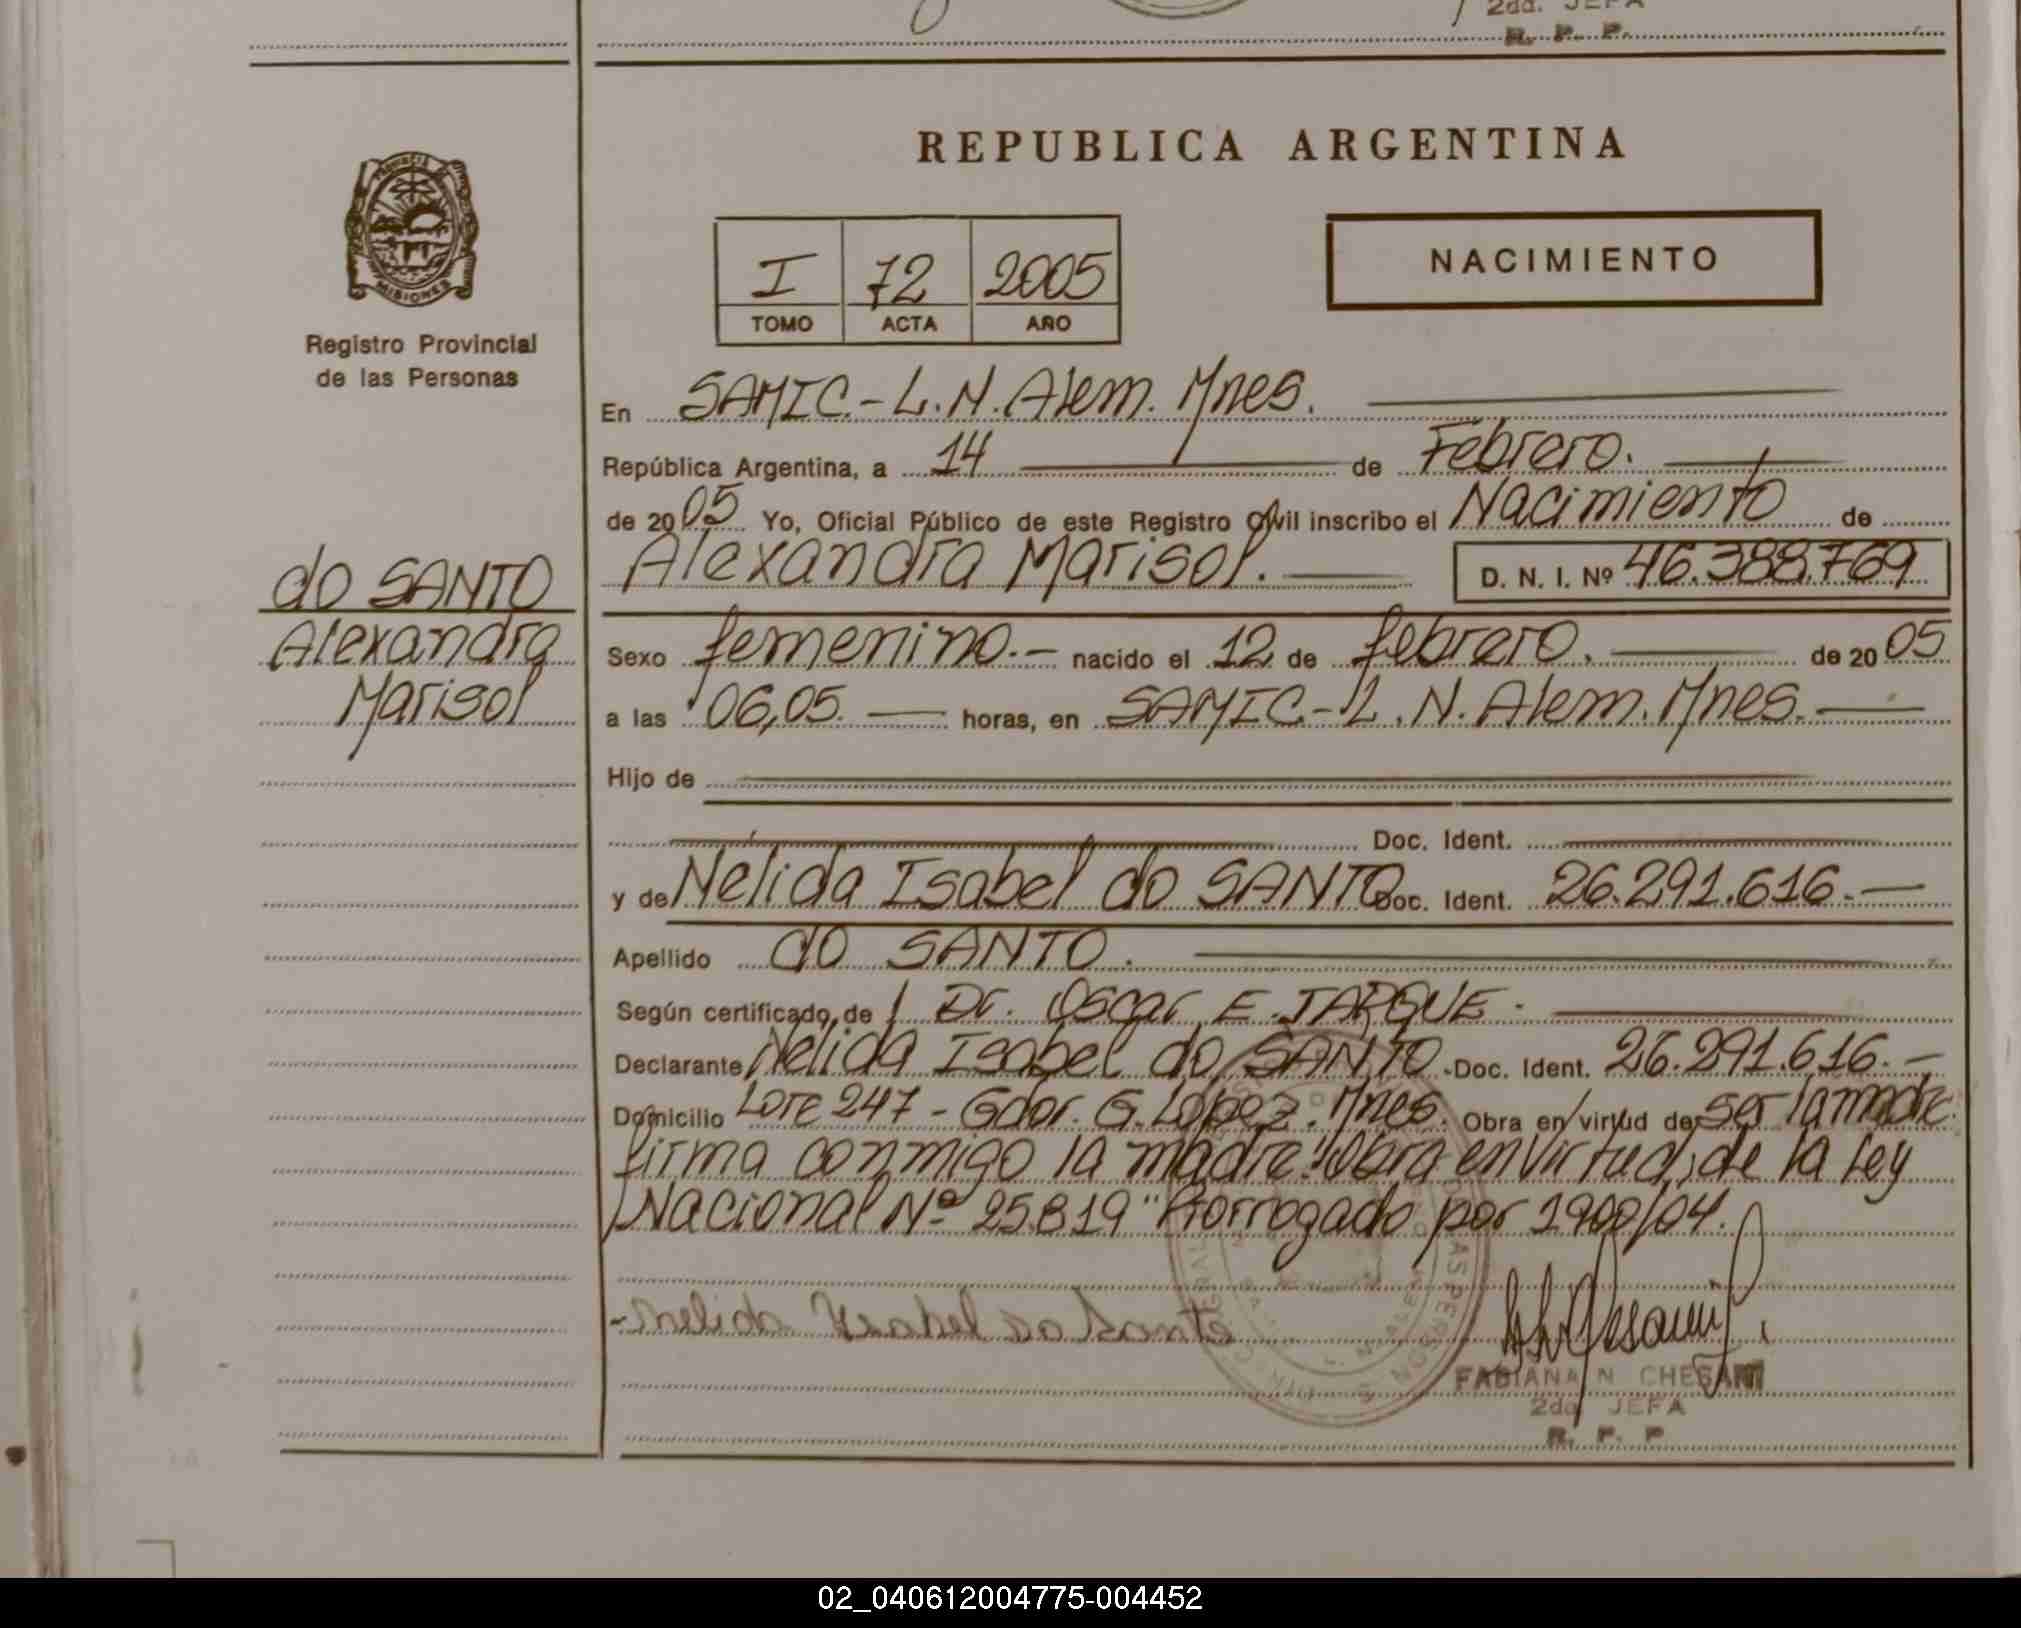 2da. JEFA
R. P. P.
REPUBLICA ARGENTINA
PROVINCIA DE
MISIONES
Registro Provincial
de las Personas
I 72 2005
TOMO ACTA AÑO
NACIMIENTO
En SAMIC.-L.N.Alem. Mnes.
República Argentina, a 14 de Febrero.
de 2005 Yo, Oficial Público de este Registro Civil inscribo el Nacimiento de
Alexandra Marisol. D. N. I. Nº 46.388.769
do SANTO
Alexandra
Marisol
Sexo femenino.- nacido el 12 de febrero. de 2005
a las 06,05. horas, en SAMIC.-L.N.Alem. Mnes.
Hijo de
Doc. Ident.
y de Nelida Isabel do SANTO Doc. Ident. 26.291.616.-
Apellido do SANTO.
Según certificado de Dr. Oscar E. JARQUE.
Declarante Nelida Isabel do SANTO. Doc. Ident. 26.291.616.-
Domicilio Lote 247 - Gdor. G. Lopez. Mnes. Obra en virtud de ser la madre.
firma conmigo la madre. "Obra en virtud, de la Ley
Nacional Nº 25.819" Prorrogado por 1900/04.
-nelida Ysabel do Santo
FABIANA N CHESANI
2da JEFA
R. P. P.
02_040612004775-004452